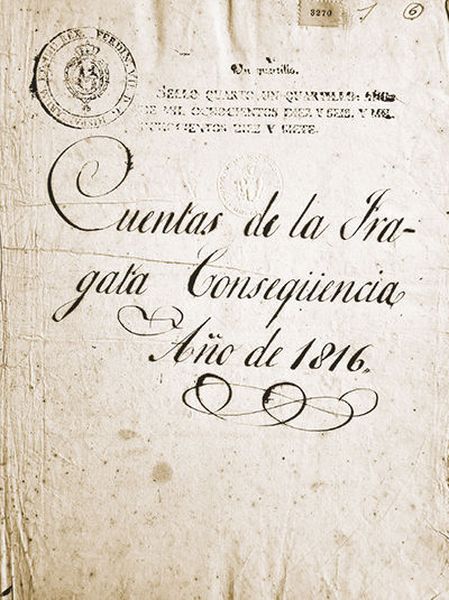 3270
1
6
Un quartillo.
SELLO QUARTO, UN QUARTILLO, AÑOS
DE MIL OCHOCIENTOS DIEZ Y SEIS, Y MIL
OCHOCIENTOS DIEZ Y SIETE.
Cuentas de la Fra-
gata Conseqüencia
Año de 1816.